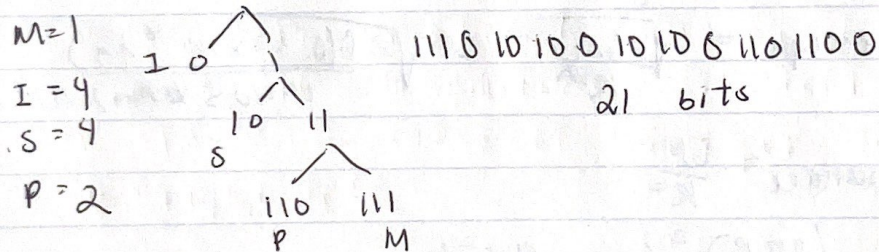 M=1
I = 4
S = 4
P = 2
I 0 1
10 11
S
110 111
P M
111 0 10 10 0 10 10 0 110 110 0
21 bits